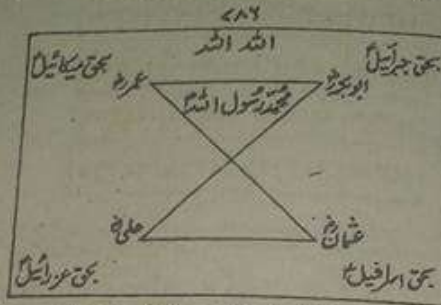 ۷۸۶
اللہ اللہ
بحق جبرائیلؑ
بحق میکائیلؑ
ابوبکرؓ
عمرؓ
محمد رسول اللہؐ
عثمانؓ
علیؓ
بحق اسرافیلؑ
بحق عزرائیلؑ